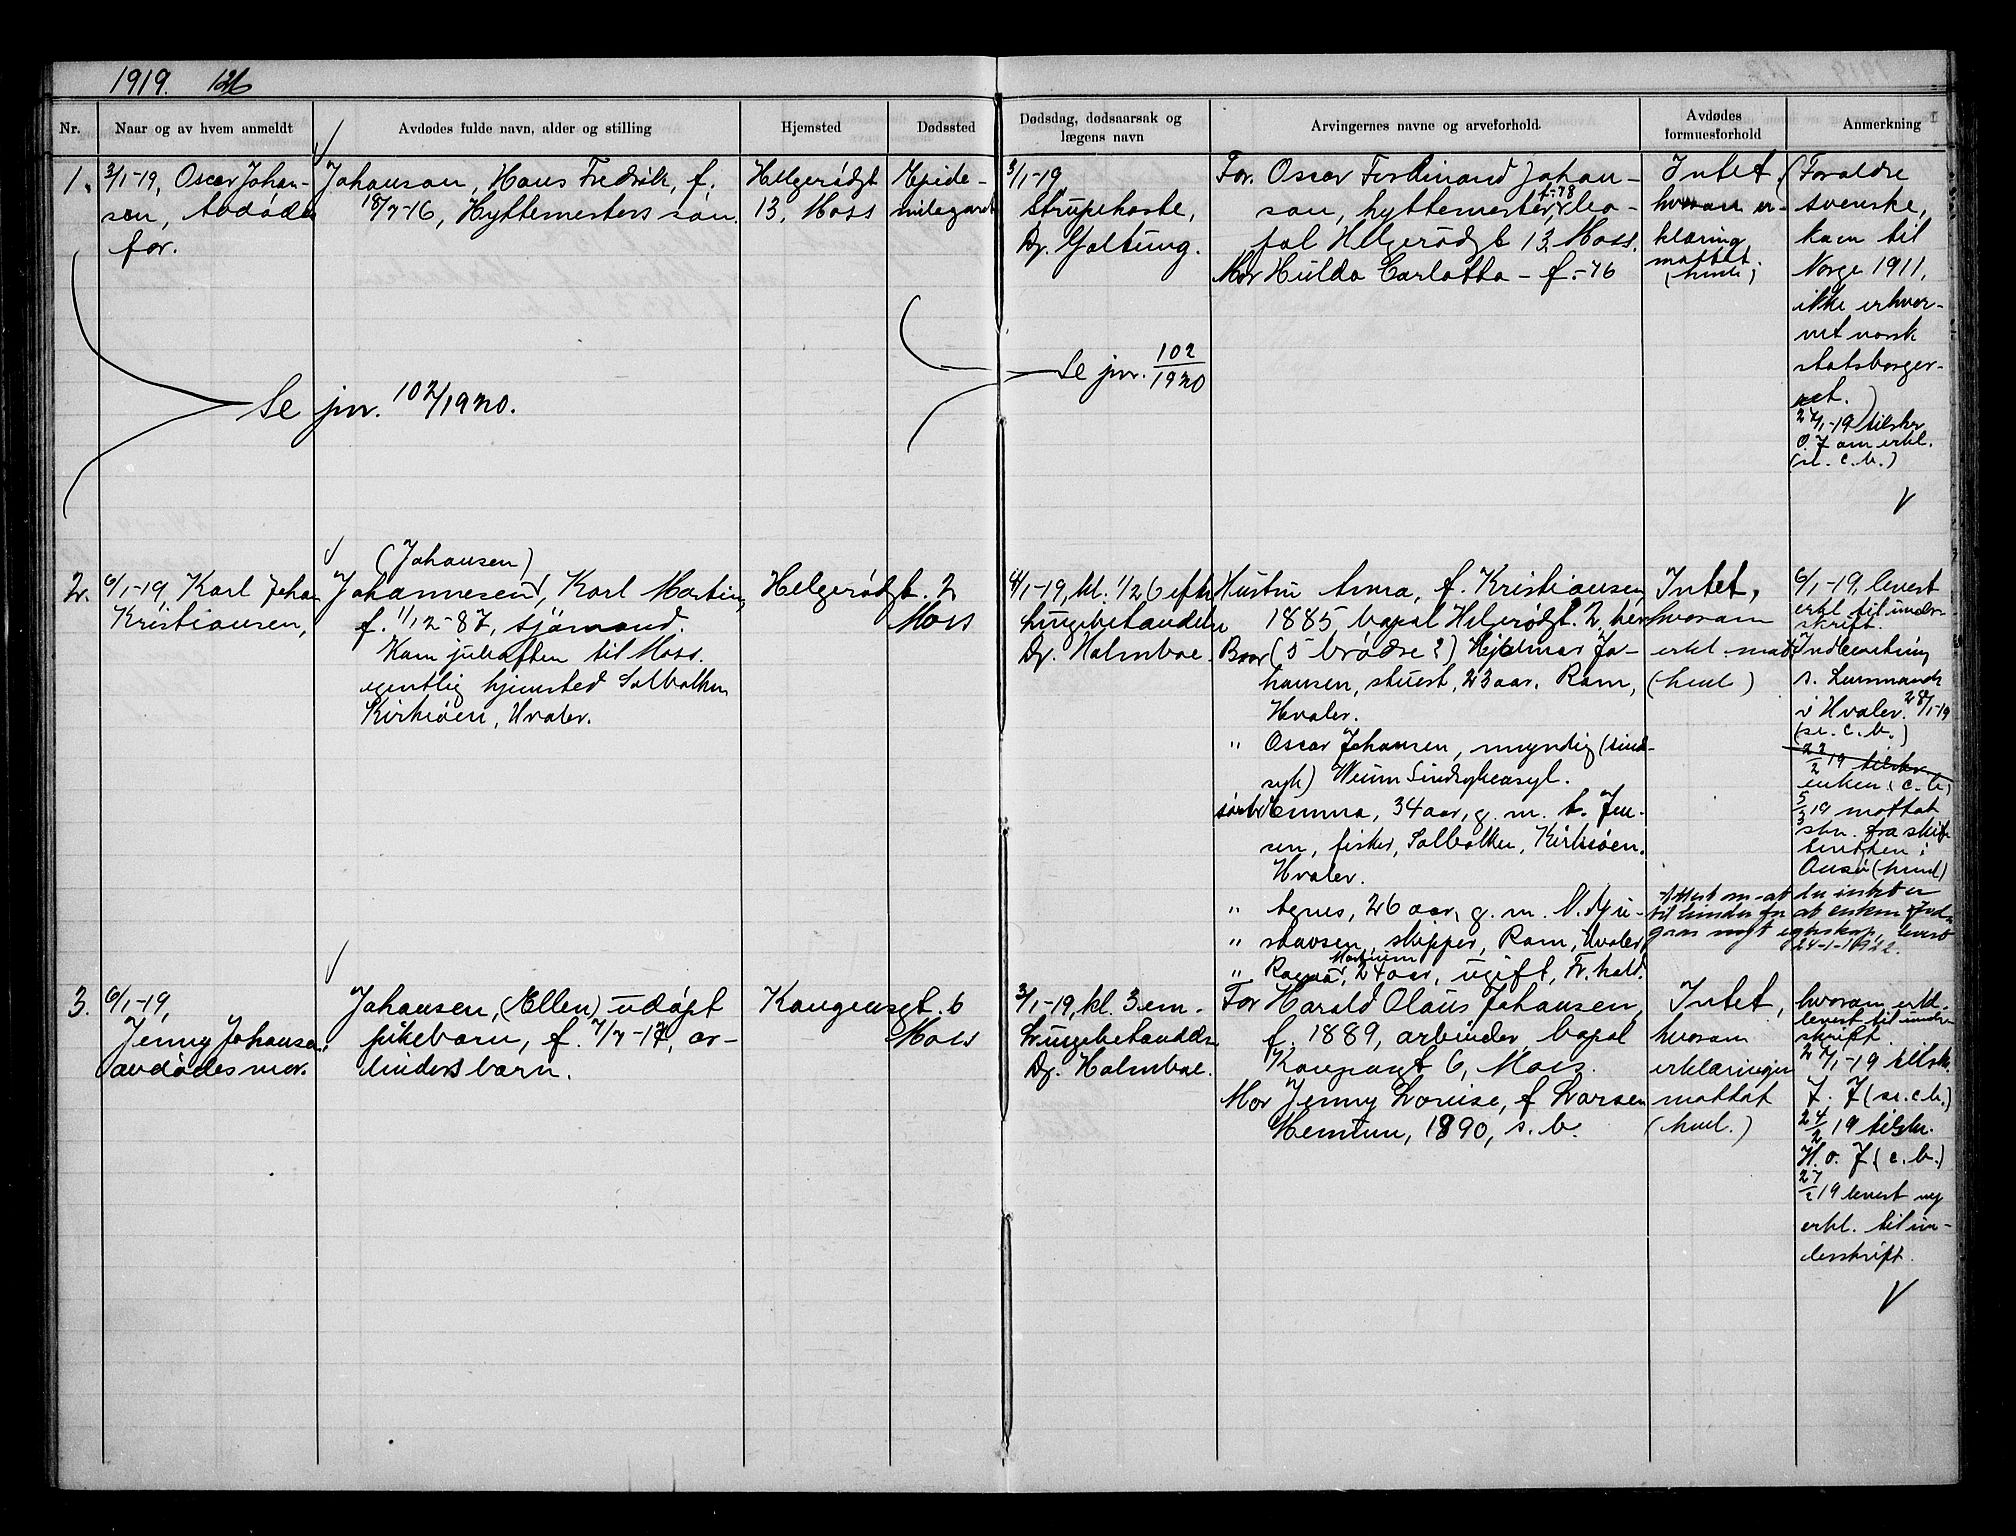 1919.
Nr.
Naar og av hvem anmeldt
Avdødes fulde navn, alder og stilling
Hjemsted
Dødssted
Dødsdag, dødsaarsak og
lægens navn
Arvingernes navne og arveforhold.
Avdødes
formuesforhold
Anmerkning
1.
3/1-19, Oscar Johan-
son, Avdødes
far.
Johanson, Hans Fredrik, f.
18/7-16, Hyttemesters søn.
Helgerødgt
13, Moss
Epide-
milazaret
3/1-19,
Strupehoste,
Dr. Galtung.
Far. Oscar Ferdinand Johan-
f.-78
son, hyttemester, bo-
pal Helgerødgt 13, Moss.
Mor Hulda Carlotta - f.-76
Intet,
hvorom er-
klæring
mottat
(hmd.;
Foræld​re
svenske,
kom til
Norge 1911,
ikke erhver-
vet norsk
statsborger-
ret.)
27/1-19 tilskr.
O. J om erkl.
(se. c. b.)
Se jnr. 102/1920.
Se jnr. 102/1920
2.
6/1-19, Karl Johan
Kristiansen,
(Johansen)
Johannesen, Karl Martin,
f. 1/12-87, sjømand.
Kom juleaften til Moss.
egentlig hjemsted Solbakken
Kirkeøen, Hvaler.
Helgerødgt. 2
Moss
4/1-19, kl. 1/2 6 eftm
Lungebetændelse
Dr. Holmboe.
Hustru Anna, f. Kristiansen,
1885 bopal Helgerødgt. 2, her
Bror (5 brødre?) Hjalmar Jo-
hansen, stuert, 23 aar, Ram,
Hvaler.
" Oscar Johansen, myndig (sind-
syk) Veum Sindsykeasyl.
søster Emma, 34 aar, g. m. L. Jen-
sen, fisker, Solbakken, Kirkeøen.
Hvaler.
" Agnes, 26 aar, g. m.
" skipper, Ram, Hvaler
" Ragna, 24 aar, ugift, Fr.hald.
Intet,
hvorom
erkl. mott
(hmd.)
6/1-19, levert
erkl. til under-
skrift.
Indberetning
f. Lensmanden
i Hvaler. 28/1-19
(se. c. b.)
22/2 19 tilskr.
enken (c. b.)
5/3 19 mottat
skr. fra skifte
retten i
Onsø (hmd)
Attest om at der intet er
til hinder for at enken ind-
gaar nyt egteskap, levert
3.
6/1-19,
Jenny Johansen,
avdødes mor.
Johansen, (Ellen) udøpt
pikebarn, f. 7/7-17, ar-
beiders barn.
Kongensgt. 6
Moss
3/1-19, kl. 3 em.
Lungebetændelse
Dr. Holmboe.
Far Harald Olaus Johansen,
f. 1889, arbeider, bopal
Kongensgt 6, Moss.
Mor Jenny Lovise, f Larsen
1890, s. b.
Intet,
hvorom
erklæringen
mottat
(hmd.)
hvorom erkl.
levert til under-
skrift.
27/1-19 tilskr.
J. J (se. c. b.)
24/2 19 tilskr.
H. O. J (c. b.)
27/2 19 levert ny
erkl. til un-
derskrift.